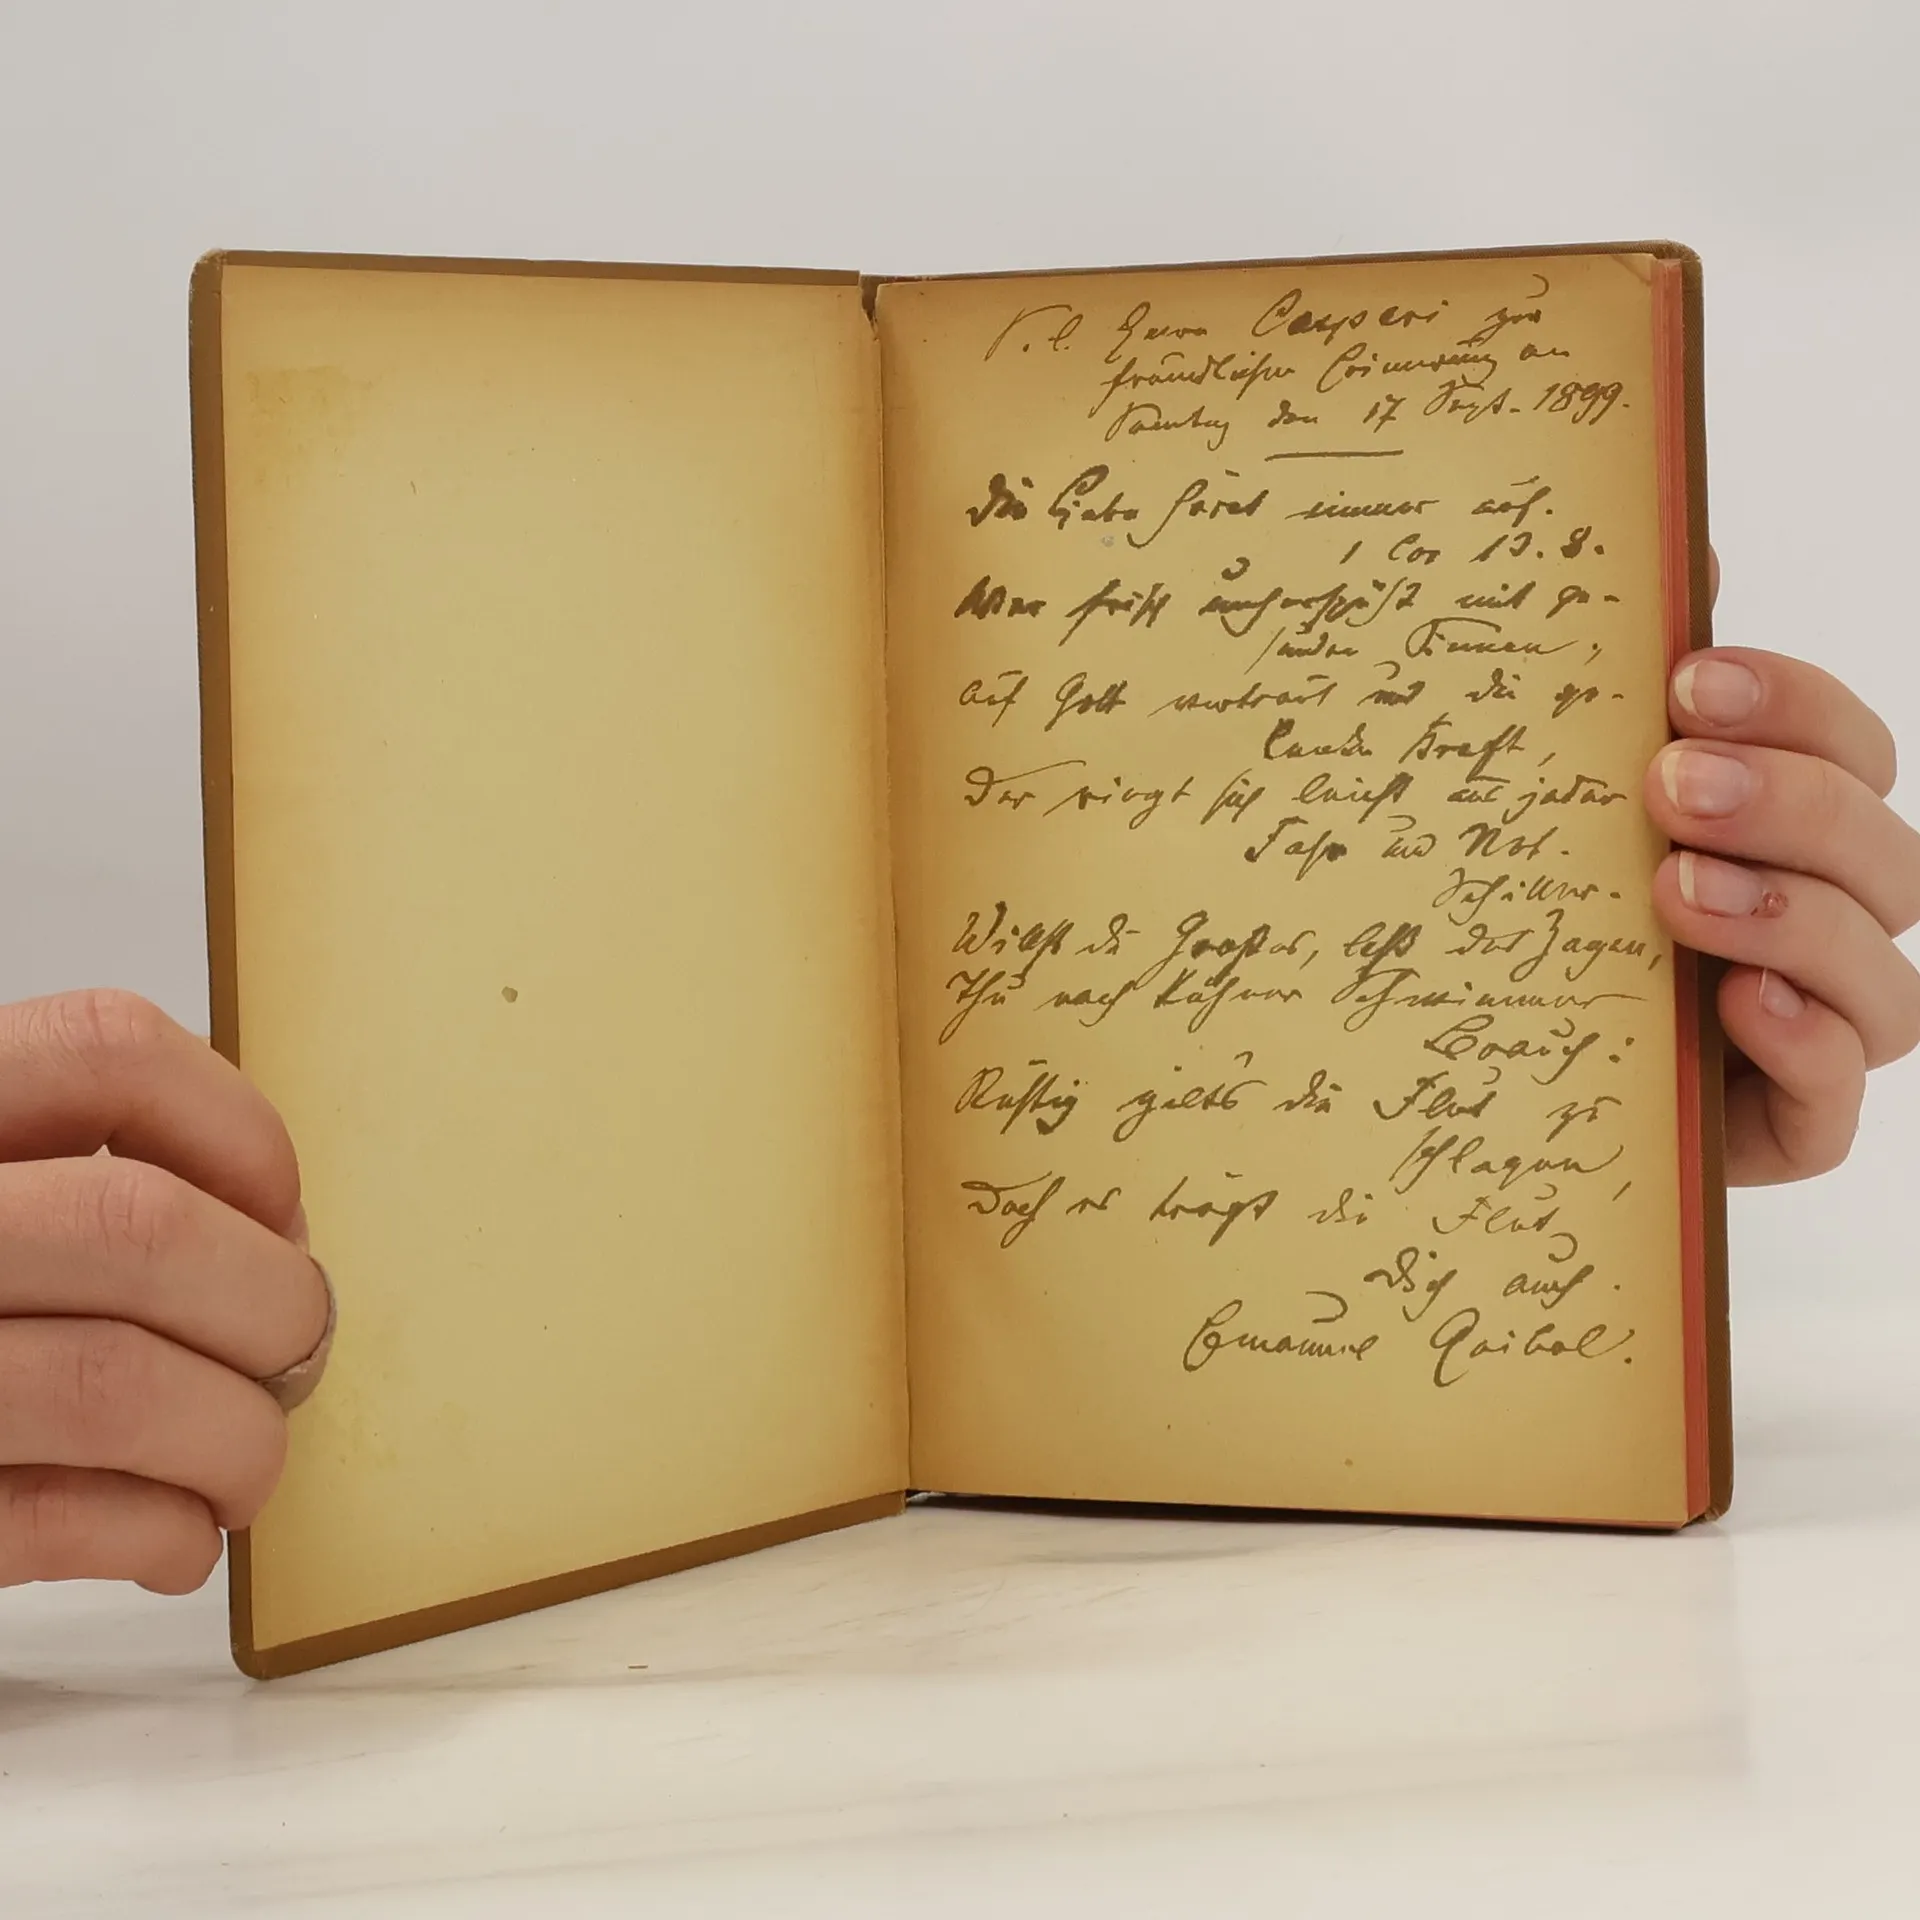 S. l. Herrn Caspari zur
freundlichen Erinnerung an
Sonntag den 17 Sept. 1899.
Die Liebe höret immer auf.
1 Cor 13. 8.
Wer frisch umherspäht mit ge-
sunden Sinnen,
auf Gott vertraut und die ge-
lenke Kraft,
Der ringt sich leicht aus jeder
Fahr und Not.
Schiller.
Willst du Großes, laß das Zagen,
Thu nach kühner Schwimmer
Brauch:
Rüstig gilt's die Flut zu
schlagen,
Doch es trägt die Flut
dich auch.
Emanuel Geibel.